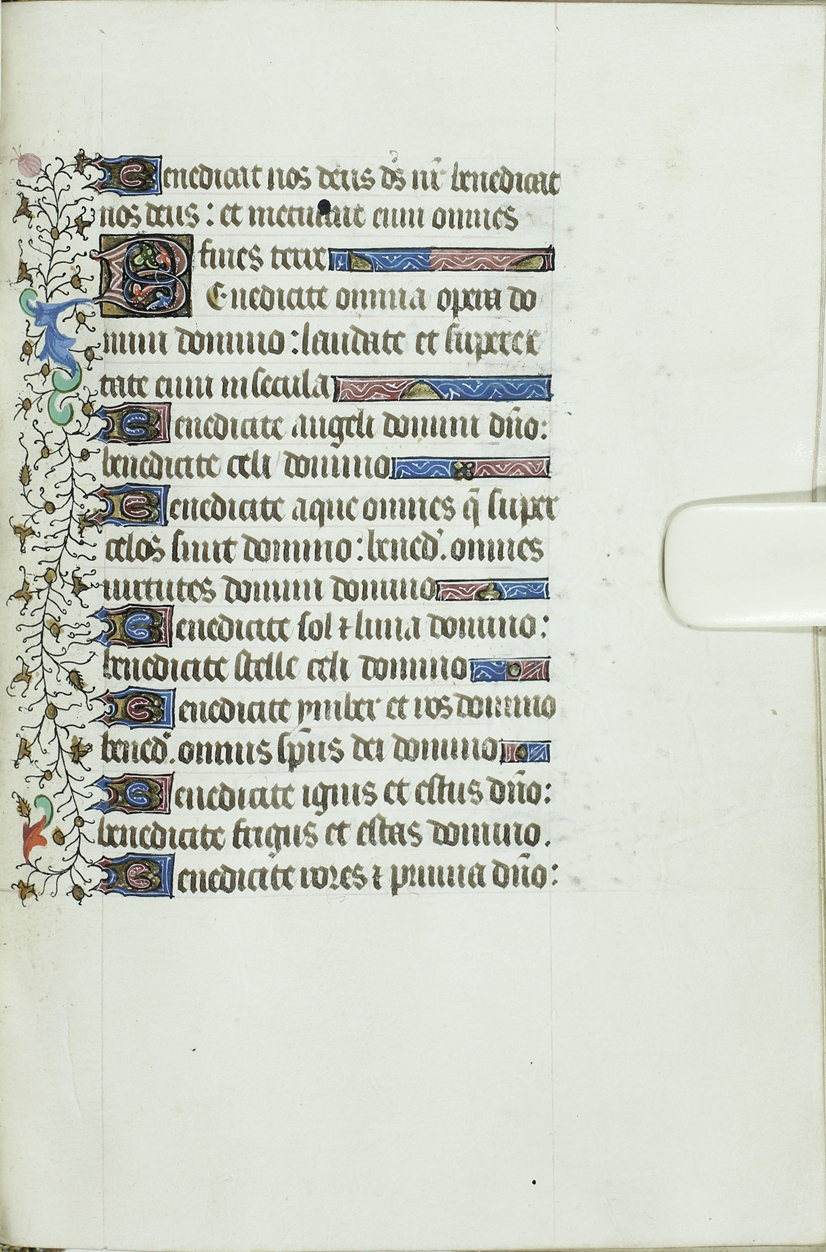 Benedicat nos deus ds nr̄ benedicat
nos deus : et metuant eum omnes
fines terre
Benedicite omnia opera do
mini domino : laudate et superex
tate eum in secula
Benedicite angeli domini dn̄o :
benedicite celi domino
Benedicite aque omnes q̄ super
celos sunt domino : bened. omnes
uirtutes domini domino
Benedicite sol ⁊ luna domino :
benedicite stelle celi domino
Benedicite ymber et ros domino
bened. omnis sp̄us dei domino
Benedicite ignis et estus dn̄o :
benedicite frigus et estas domino .
Benedicite rores ⁊ pruina dn̄o :